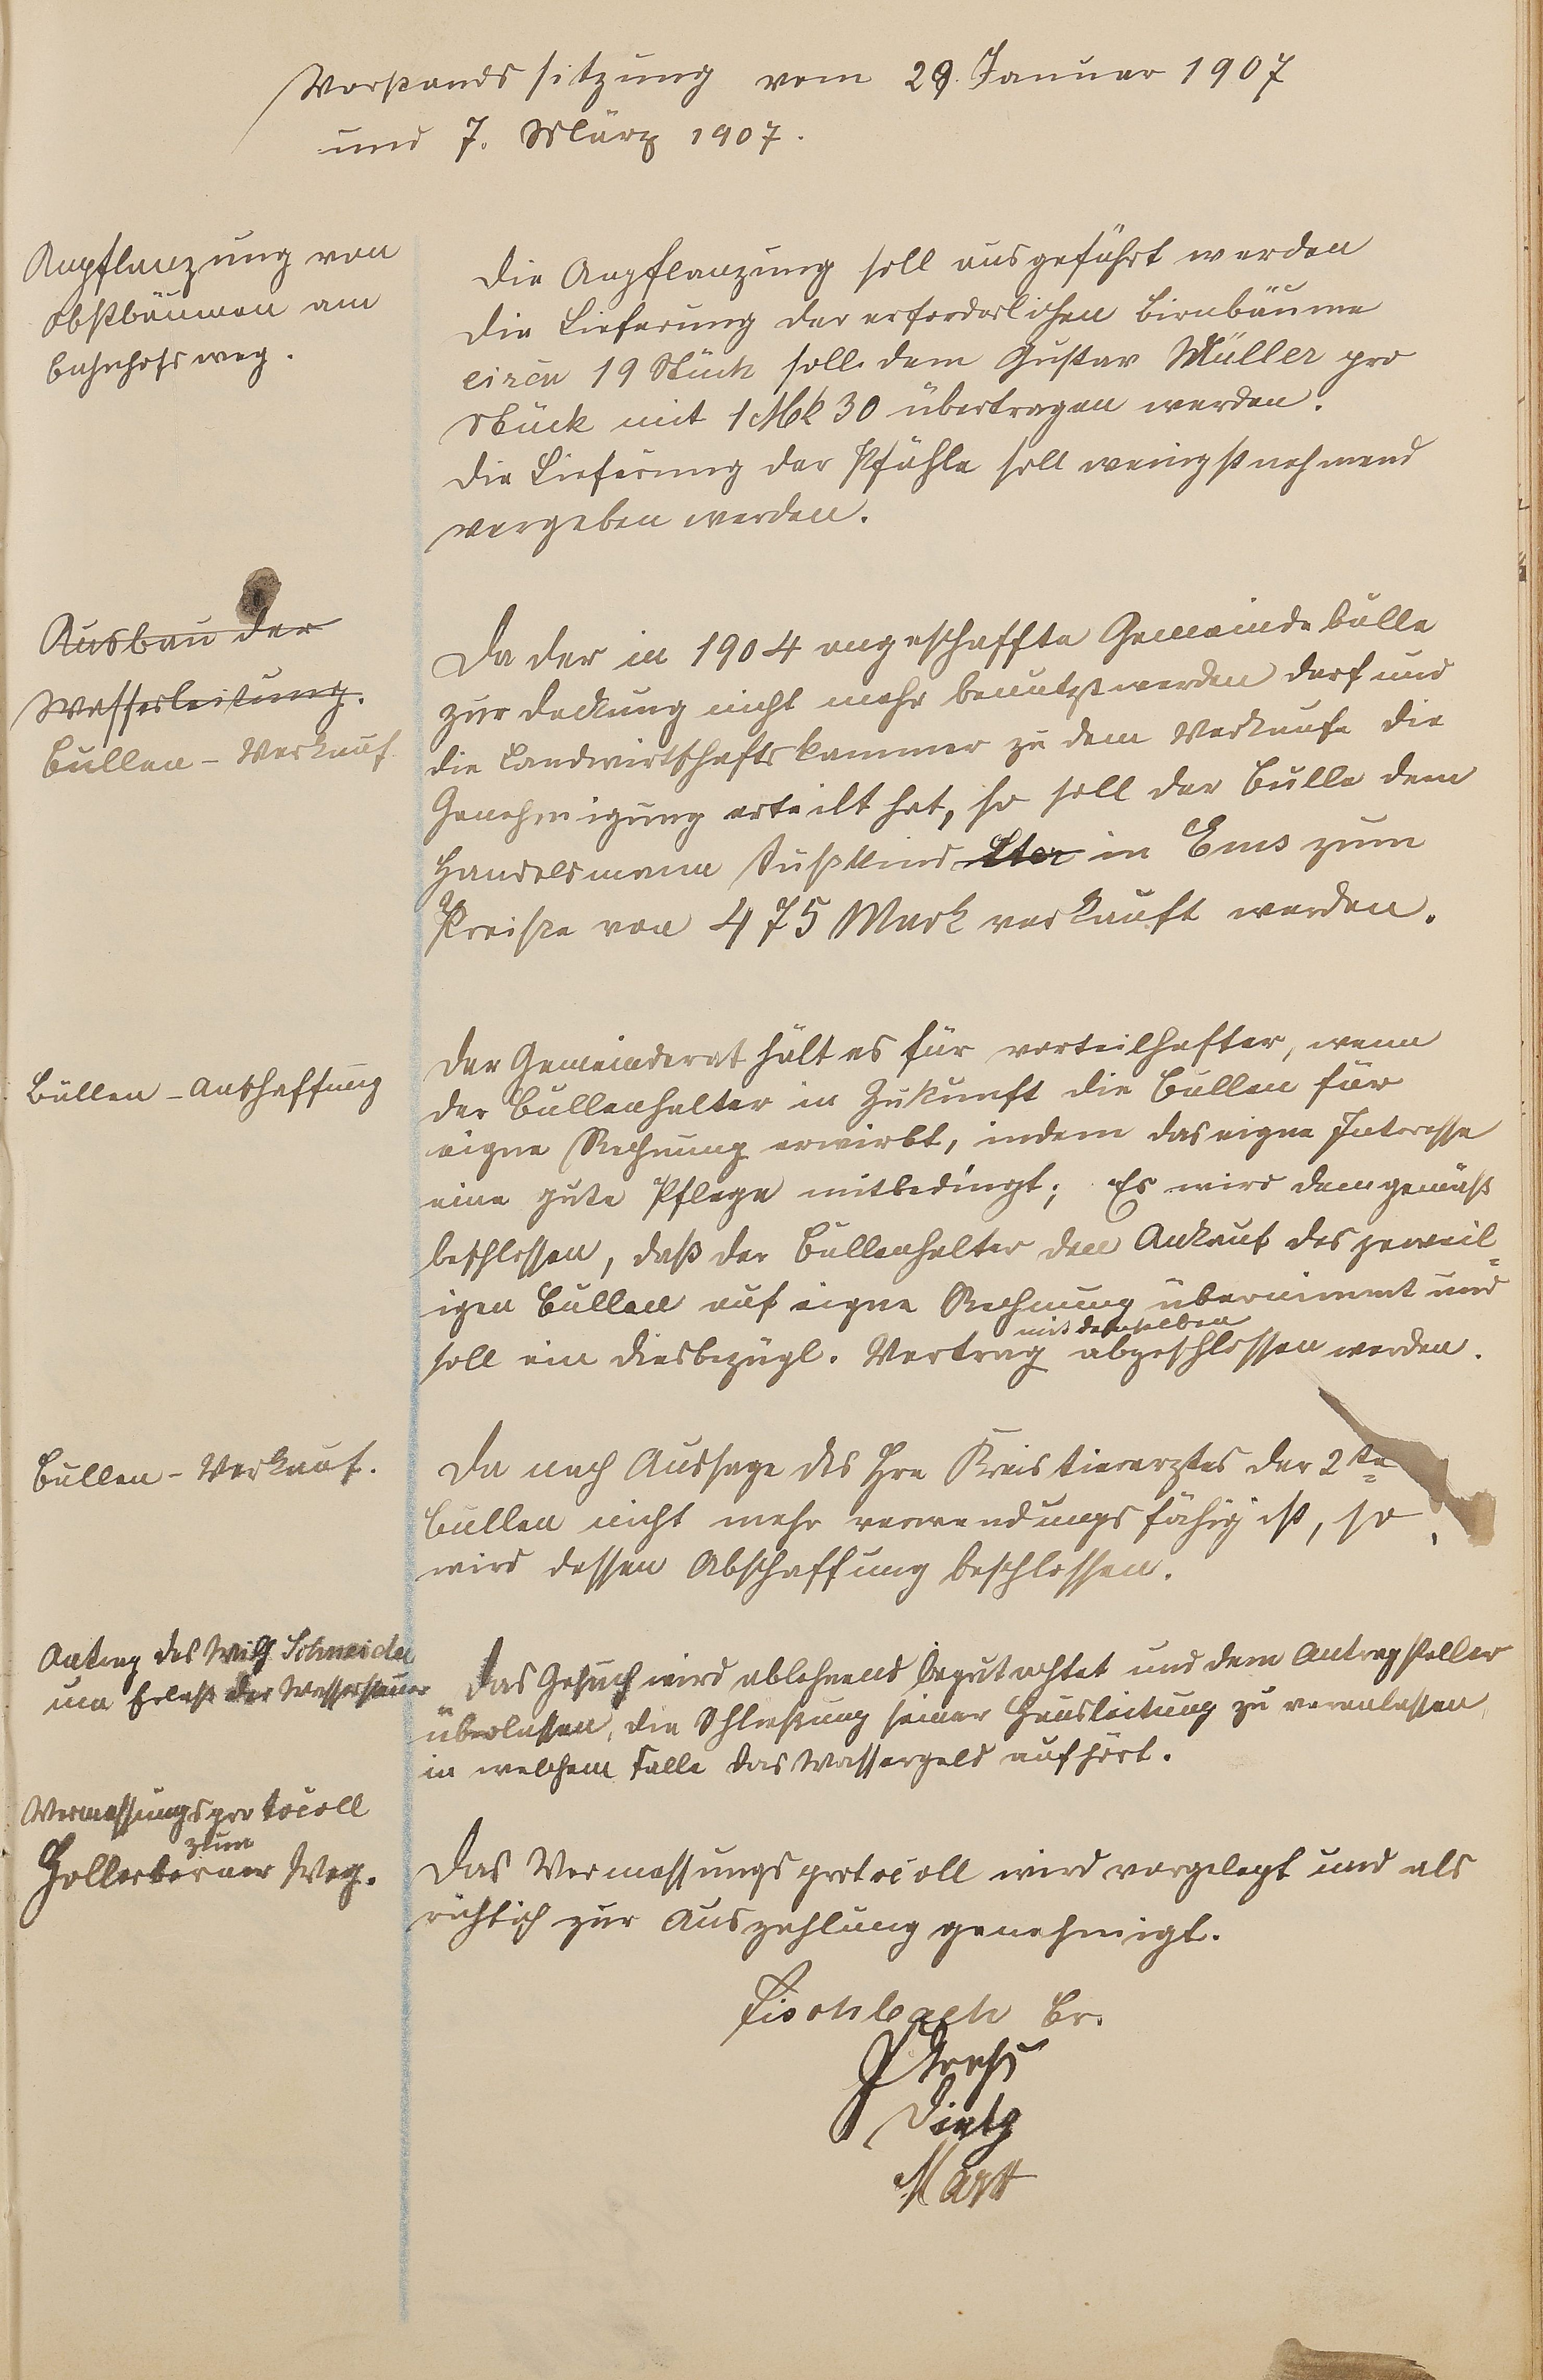 Vorstandssitzung vom 29. Januar 1907
und 7. März 1907.
Anpflanzung von
Obstbäumen am
Bahnhofsweg.
Die Anpflanzung soll ausgeführt werden
Die Lieferung der erforderlichen Birnbäume
circa 19 Stück soll dem Gustav Müller pro
Stück mit 1 Mk 30 übertragen werden.
Die Lieferung der Pfähle soll wenigstnehmend
vergeben werden.
Ausbau der
Wasserleitung.
Bullen-Verkauf
Da der in 1904 angeschaffte Gemeindebulle
zur Deckung nicht mehr benutzt werden darf und
die Landwirtschaftskammer zu dem Verkaufe die
Genehmigung erteilt hat, so soll der Bulle dem
Handelsmann Süßkind in Ems zum
Preise von 475 Mark verkauft werden.
Bullen-Anschaffung
Der Gemeinderat hält es für vorteilhafter, wenn
der Bullenhalter in Zukunft die Bullen für
eigne Rechnung erwirbt, indem das eigne Interesse
eine gute Pflege mitbedingt; Es wird demgemäß
beschlossen, daß der Bullenhalter den Ankauf des jeweil=
igen Bullen auf eigne Rechnung übernimmt und
mit demselben
soll ein diesbezügl. Vertrag abgeschlossen werden.
Bullen-Verkauf.
Da nach Aussage des Hrn Kreistierarztes der 2te
Bullen nicht mehr verwendungsfähig ist, so
wird dessen Abschaffung beschlossen.
Antrag des Wilh Schneider
um Erlaß der Wassersteuer
Das Gesuch wird ablehnend begutachtet und dem Antragsteller
überlassen, die Schließung seiner Hausleitung zu veranlassen,
in welchem Falle das Wassergeld aufhört.
Vermessungsprotocoll
zum
Hollerborner Weg.
Das Vermessungsprotocoll wird vorgelegt und als
richtig zur Auszahlung genehmigt.
Fischbach Br.
Dietz